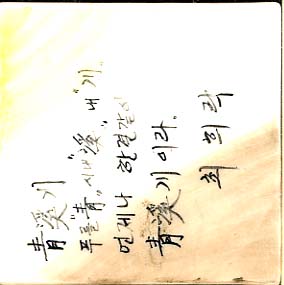 靑溪게
푸를 "靑", 시내 "溪", 내 "게",
언제나 한결같이
靑溪게 이라.
최희락